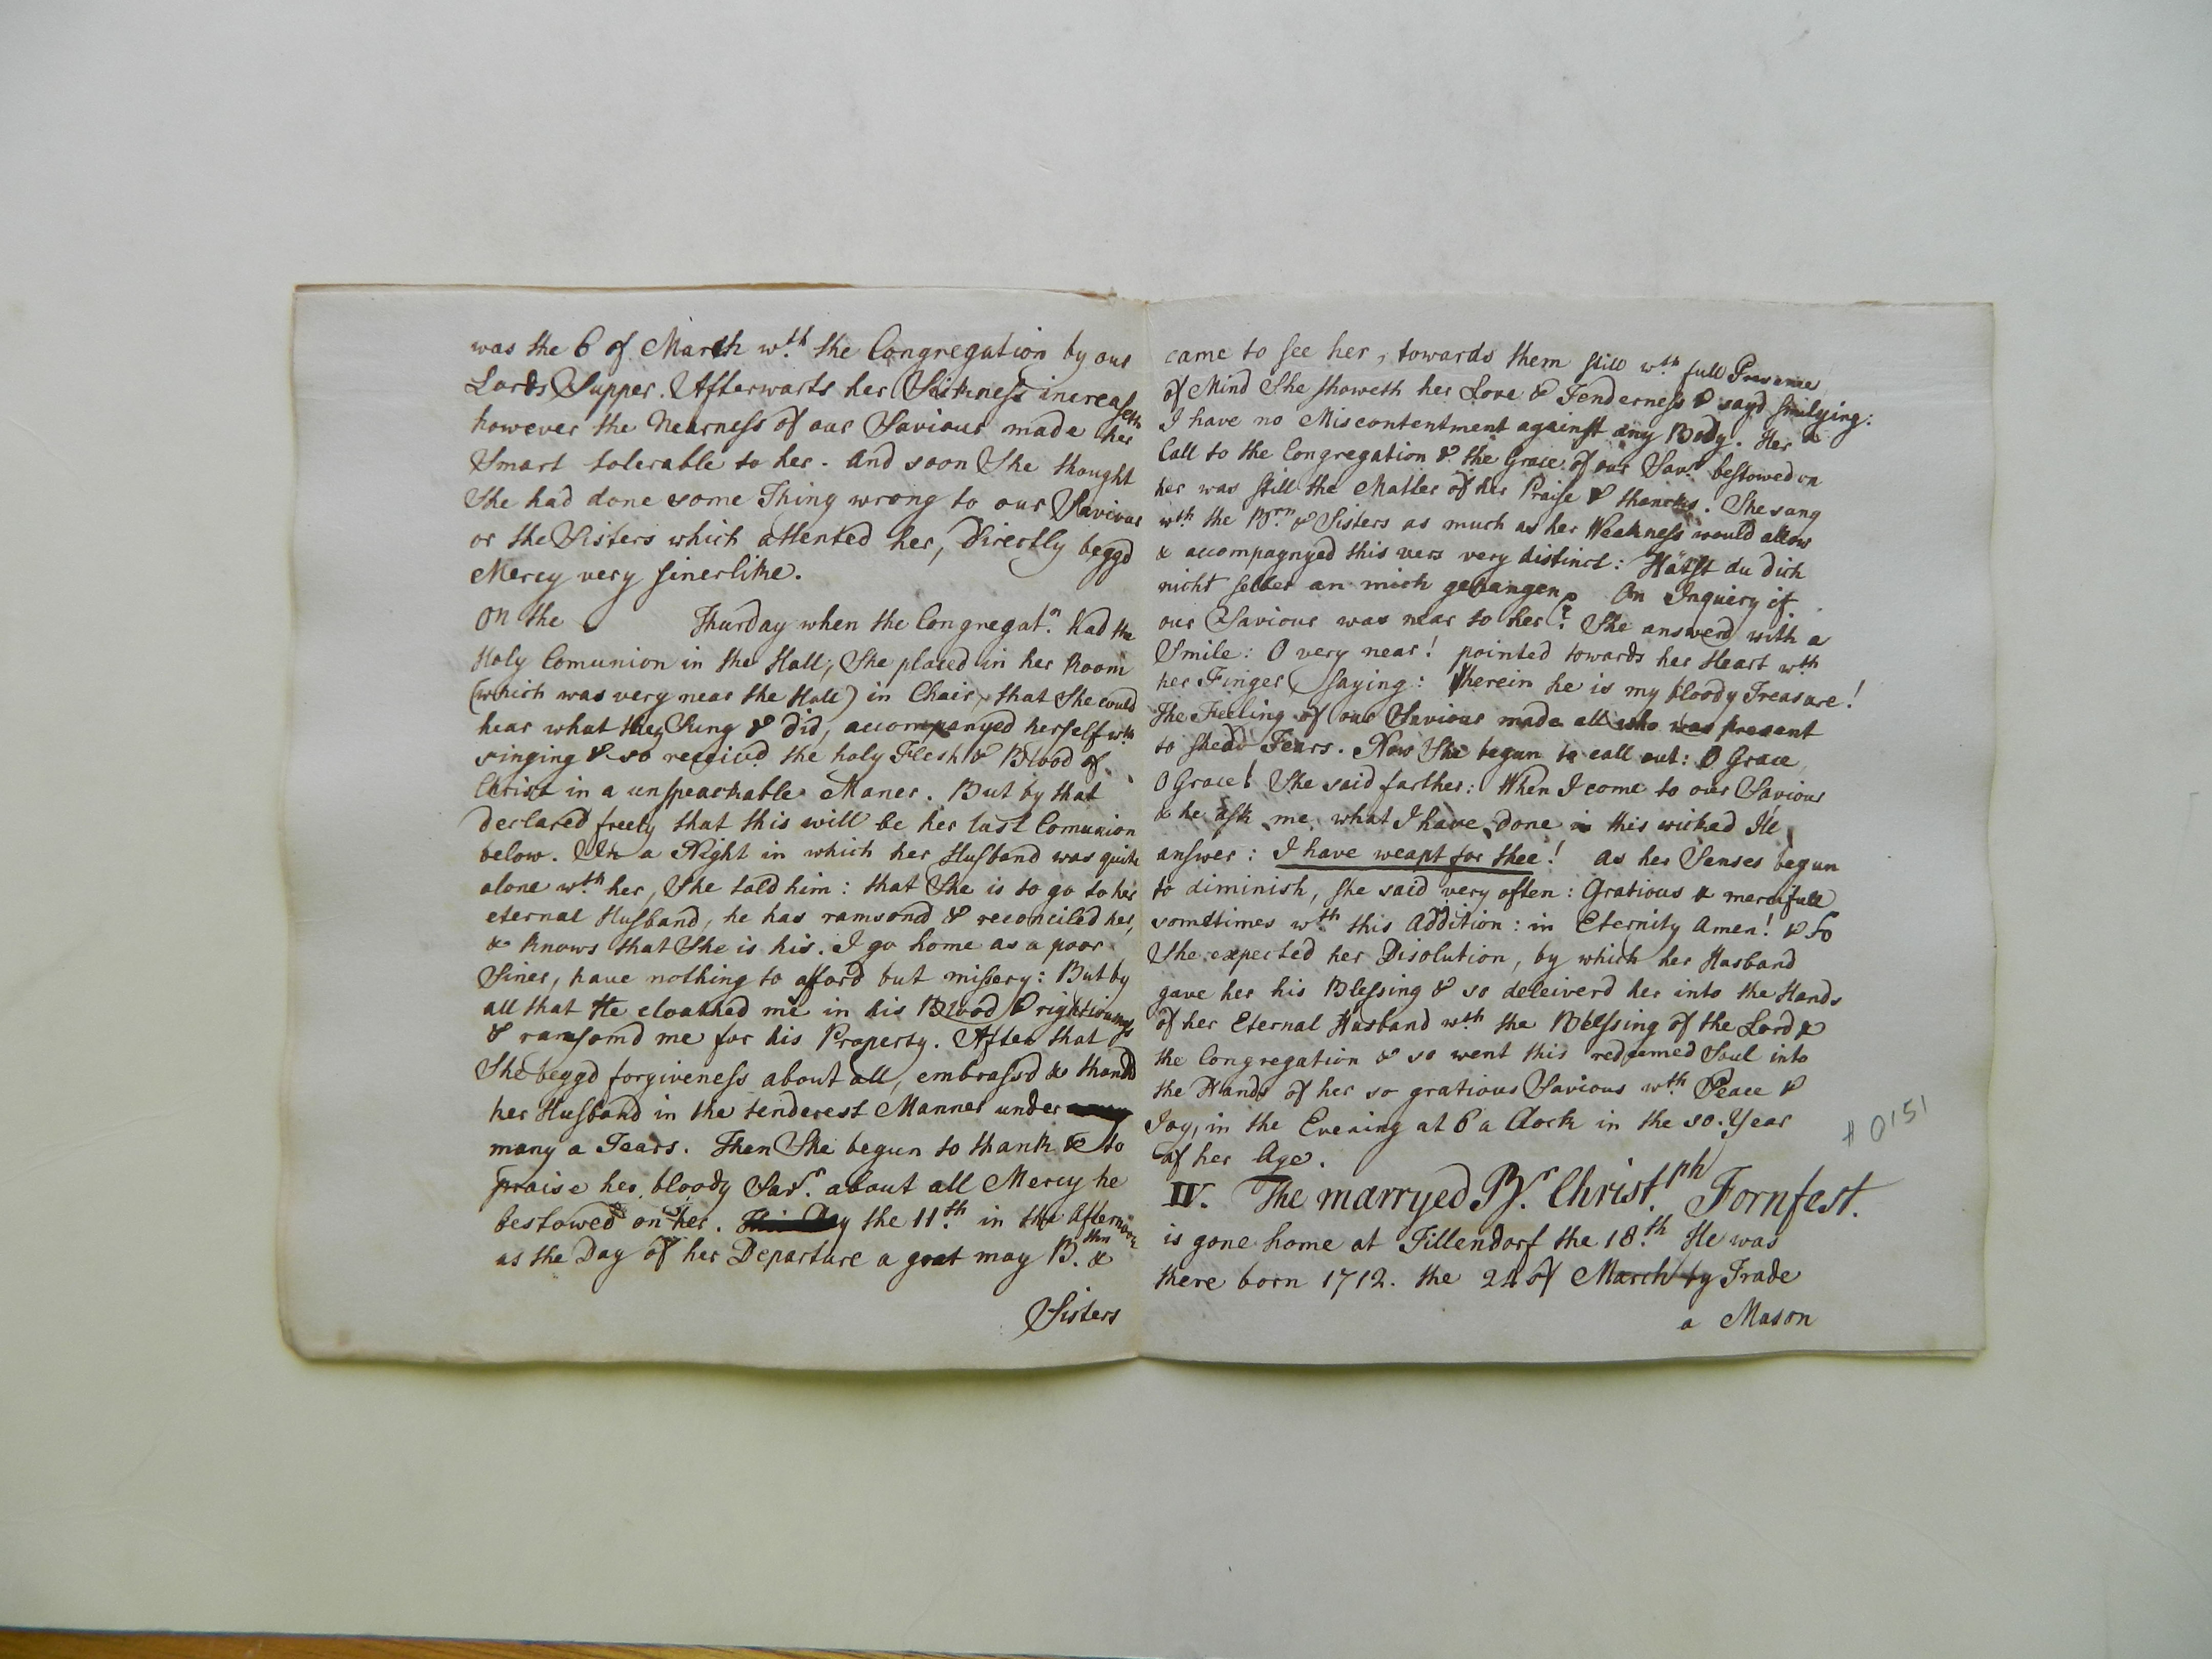 was the 6 of March wth the Congregation by our
Lords Supper. Afterwarts her Sickness increaseth
however the Nearness of our Saviour made her
Smart tolerable to her. And soon She thought
She had done some Thing wrong to our Saviour
or the Sisters which attented her, Directly beggd
Mercy very sinerlike.
On the Thursday when the Congregatn. Had the
Holy Comunion in the Hall, She placed in her Room
(which was very near the Hall) in Chair, that She could
hear what they Sung & did, accompanyed herself wth
singing & so received the holy Flesh & Blood of
Christ in a unspearkable Maner. But by that
declared freely that this will be her last Comunion
below. In a Night in which her Husband was quite
alone wth her, She told him: that She is to go to her
eternal Husband, he has ramsond & reconciled her,
& knows that She is his. I go home as a poor
Siner, have nothing to afford but missery: But by
all that He cloathed me in his Blood & rightiousness
& ransomd me for his Property. After that
She beggd forgiveness about all, embrassd & thankd
her Husband in the tenderest Manner under
many a Tears. Then She begun to thank & to
praise her bloody Savr. about all Mercy he
bestowed on her. the 11th in the Afternoon
as the Day of her Departure a great many Bthn &
Sisters
came to see her, towards them still wth full Presence
of Mind She showeth her Love & Tenderness & sayd smilying:
I have no Miscontentment against any Body. Her
Call to the Congregation & the Grace of our Savr bestowed on
her was still the Matter of her Praise & thancks. She sang
wth the Brn & Sisters as much as her Weakness would allow
& accompagnyed this vers very distinct: Hätst du dich
nicht selber an mich gehangen? On Inquiry if
our Saviour was near to her? She answerd with a
Smile: O very near! pointed towards her Heart wth
her Finger saying: Therein he is my bloody Treasure!
The Feeling of our Saviour made all who was present
to shedd Tears. Now She begun to call out: O Grace
O Grace! She said farther: When I come to our Saviour
& he ask me what I have done in this wicked I'le
answer: I have weapt for thee! As her Senses begun
to diminish, she said very often: Gratious & mercifull
somtimes wth this Addition: in Eternity Amen! & so
She expected her Disolution, by which her Husband
gave her his Blessing & so deleiverd her into the Hands
of her Eternal Husband wth the Blessing of the Lord &
the Congregation & so went this redeemed Soul into
the Hands of her so gratious Saviour wth Peace &
Joy, in the Evening at 6 a Clock in the 50. Year
of her Age.
IV. The marryed Br. Christ.ph Fornfest.
is gone home at Tillendorf the 18.th He was
there born 1712. the 24 of March by Trade
a Mason
# 0151